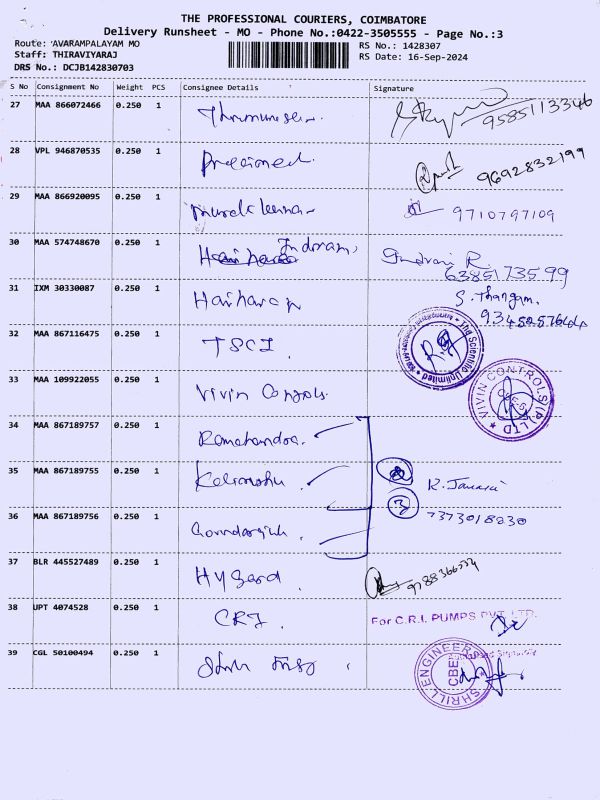 THE PROFESSIONAL COURIERS, COIMBATORE
Delivery Runsheet - MO - Phone No.:0422-3505555 - Page No.:3
Route: AVARAMPALAYAM MO
Staff: THIRAVIYARAJ
DRS No.: DCJB142830703
RS No.: 1428307
RS Date: 16-Sep-2024
S No Consignment No Weight PCS Consignee Details Signature
27 MAA 866072466 0.250 1 9585113346
28 VPL 946870535 0.250 1 9692832199
29 MAA 866920095 0.250 1 9710797109
30 MAA 574748670 0.250 1 Indrani R.
6385173599
31 IXM 30330087 0.250 1 Hariharan S. Thangam.
32 MAA 867116475 0.250 1 TSCI. The Scientific Unlimited
33 MAA 109922055 0.250 1 Vivin Controls VIVIN CONTROLS (P) LTD
34 MAA 867189757 0.250 1 Ramachandra
35 MAA 867189755 0.250 1 K. Janaki
36 MAA 867189756 0.250 1 3 7373018230
37 BLR 445527489 0.250 1
38 UPT 4074528 0.250 1 CRI. For C.R.I. PUMPS PVT. LTD.
39 CGL 50100494 0.250 1 SHRILL ENGINEERS CBE